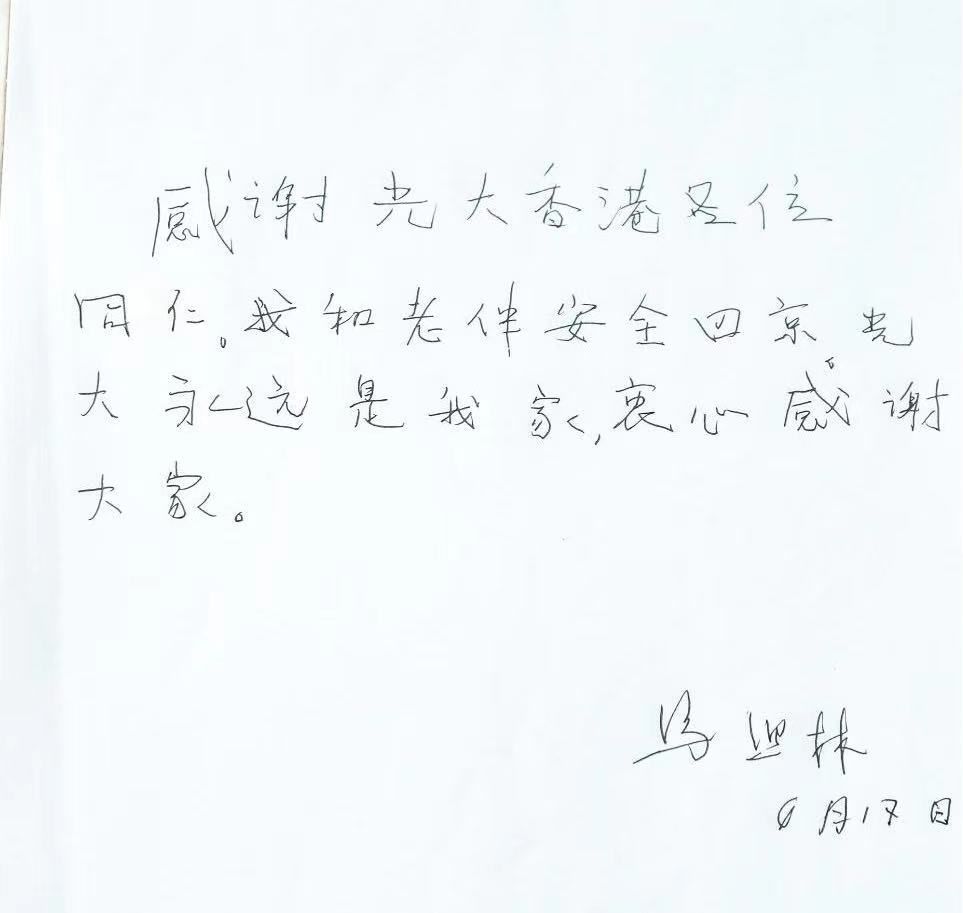 感谢光大香港各位
同仁。我和老伴安全回京。光
大永远是我家,衷心感谢
大家。
马 林
6月17日